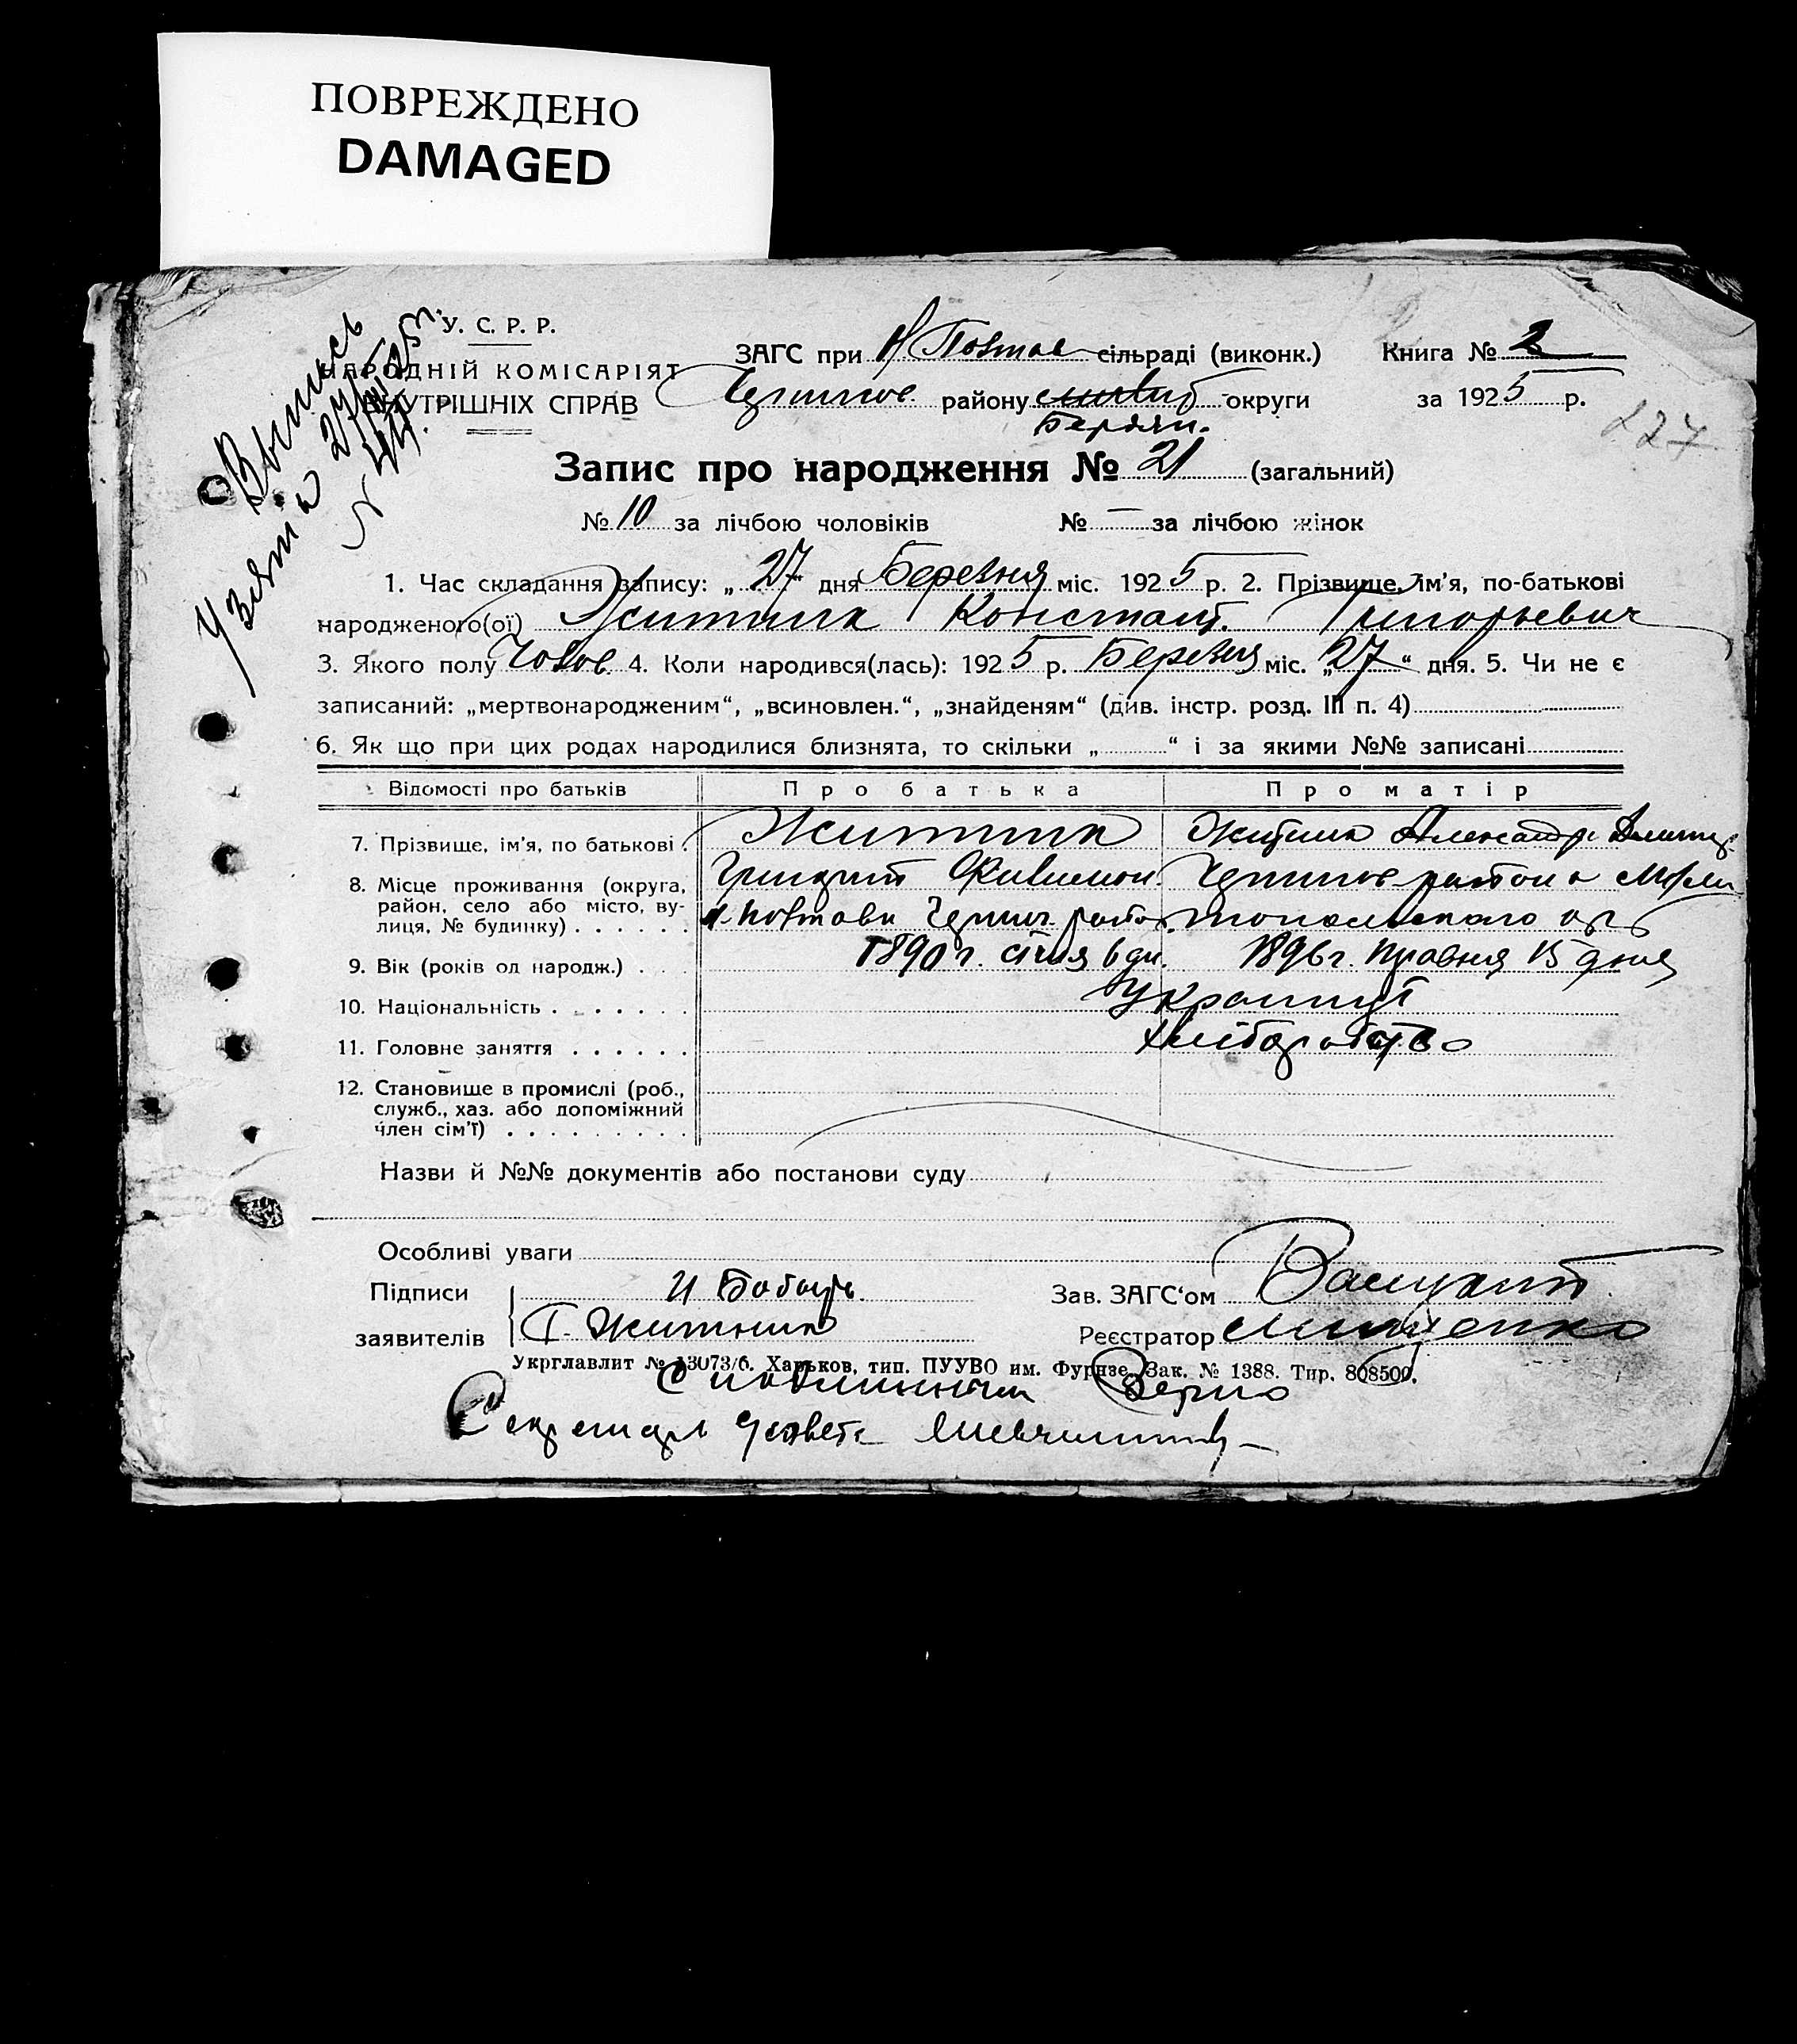 ПОВРЕЖДЕНО
DAMAGED
У. С. Р. Р.
НАРОДНІЙ КОМІСАРІЯТ
ВНУТРІШНІХ СПРАВ
Выпись
Узята
ЗАГС при Н Полтав сільраді (виконк.) Книга № 2
району округи за 1925 р.
Бердян.
227
Запис про народження № 21 (загальний)
№ 10 за лічбою чоловіків № — за лічбою жінок
1. Час складання запису: „ 27 “ дня Березня міс. 1925 р. 2. Прізвище, ім'я, по-батькові
народженого(ої) Житник Констант. Григорьевич
3. Якого полу Чолов. 4. Коли народився(лась): 1925 р. Березня міс. „ 27 “ дня. 5. Чи не є
записаний: „мертвонародженим“, „всиновлен.“, „знайденям“ (див. інстр. розд. III п. 4)
6. Як що при цих родах народилися близнята, то скільки „ “ і за якими №№ записані
Відомості про батьків Про батька Про матір
7. Прізвище, ім'я, по батькові Житник Житник Александр.
8. Місце проживання (округа, Филимон.
район, село або місто, ву- района
лиця, № будинку) . . . . . . Полтавки
9. Вік (років од народж.) . . . 1890 г. січня 6 дн. 1896 г. травня 15 дня
10. Національність . . . . . . .
11. Головне заняття . . . . . . Хліборобство
12. Становище в промислі (роб.,
служб., хаз. або допоміжний
член сім'ї) . . . . . . . . .
Назви й №№ документів або постанови суду
Особливі уваги
Підписи Зав. ЗАГС'ом
заявителів Г. Житник Реєстратор
Укрглавлит № 13073/6. Харьков, тип. ПУУВО им. Фрунзе. Зак. № 1388. Тир. 808500.
Секретарь